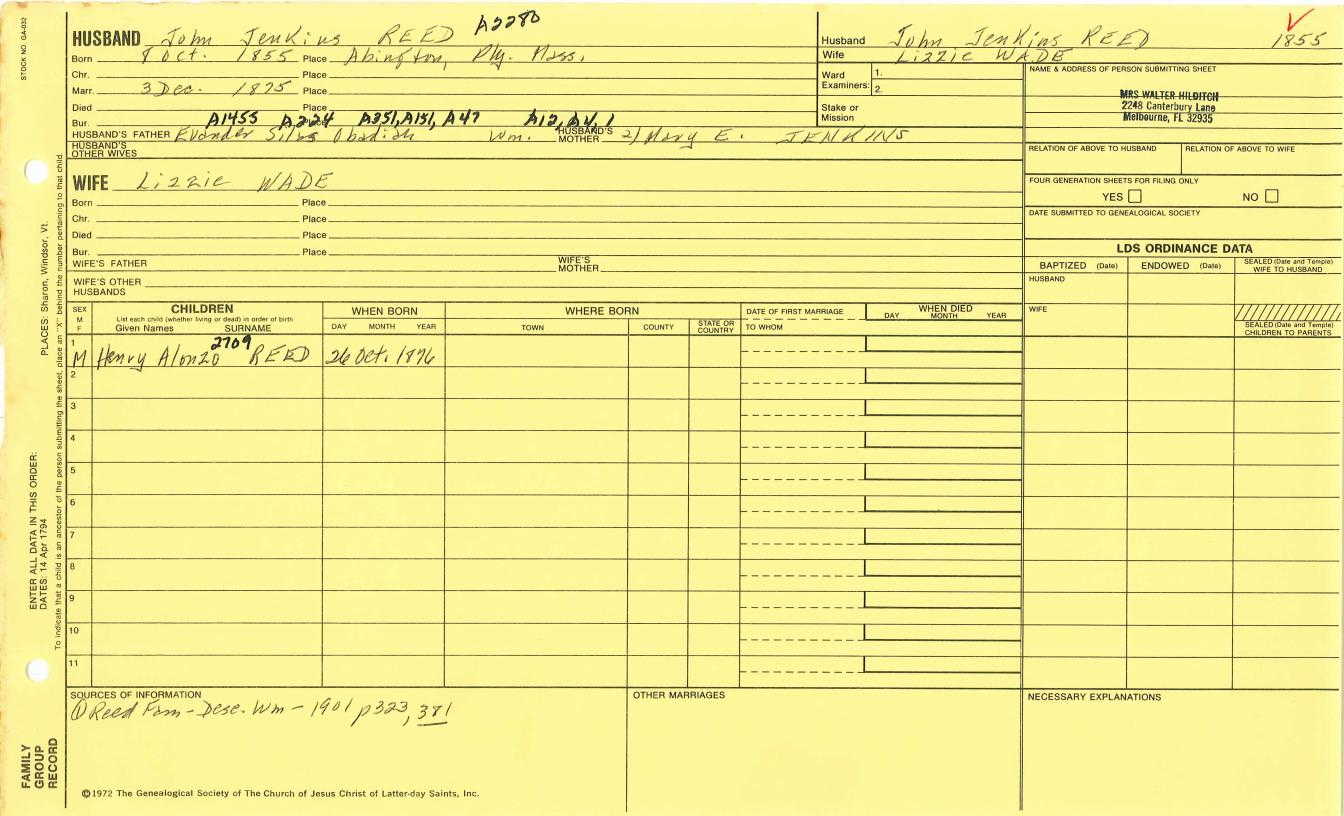 STOCK NO. GA-032
PLACES: Sharon, Windsor, Vt.
ENTER ALL DATA IN THIS ORDER:
DATES: 14 Apr 1794
To indicate that a child is an ancestor of the person submitting the sheet, place an "X" behind the number pertaining to that child.
FAMILY GROUP RECORD
HUSBAND John Jenkins REED A2280
Born 8 Oct. 1855 Place Abington, Ply. Mass.
Chr. Place
Marr. 3 Dec. 1875 Place
Died Place
Bur. A1455 A224 Place A351, A151, A47 A12, A4, 1
HUSBAND'S FATHER Evander Silas Obadiah Wm. HUSBAND'S MOTHER 2) Mary E. JENKINS
HUSBAND'S OTHER WIVES
WIFE Lizzie WADE
Born Place
Chr. Place
Died Place
Bur. Place
WIFE'S FATHER WIFE'S MOTHER
WIFE'S OTHER HUSBANDS
Husband John Jenkins REED 1855
Wife Lizzie WADE
Ward Examiners: 1.
2.
Stake or Mission
NAME & ADDRESS OF PERSON SUBMITTING SHEET
MRS WALTER HILDITCH
2248 Canterbury Lane
Melbourne, FL 32935
RELATION OF ABOVE TO HUSBAND RELATION OF ABOVE TO WIFE
FOUR GENERATION SHEETS FOR FILING ONLY
YES NO
DATE SUBMITTED TO GENEALOGICAL SOCIETY
LDS ORDINANCE DATA
BAPTIZED (Date) ENDOWED (Date) SEALED (Date and Temple) WIFE TO HUSBAND
HUSBAND
WIFE
SEALED (Date and Temple) CHILDREN TO PARENTS
SEX M. F CHILDREN WHEN BORN WHERE BORN DATE OF FIRST MARRIAGE WHEN DIED
List each child (whether living or dead) in order of birth
Given Names SURNAME DAY MONTH YEAR TOWN COUNTY STATE OR COUNTRY TO WHOM DAY MONTH YEAR
2709
1 M Henry Alonzo REED 26 Oct. 1876
2
3
4
5
6
7
8
9
10
11
SOURCES OF INFORMATION OTHER MARRIAGES NECESSARY EXPLANATIONS
① Reed Fam - Desc. Wm - 1901 p323, 381
©1972 The Genealogical Society of The Church of Jesus Christ of Latter-day Saints, Inc.